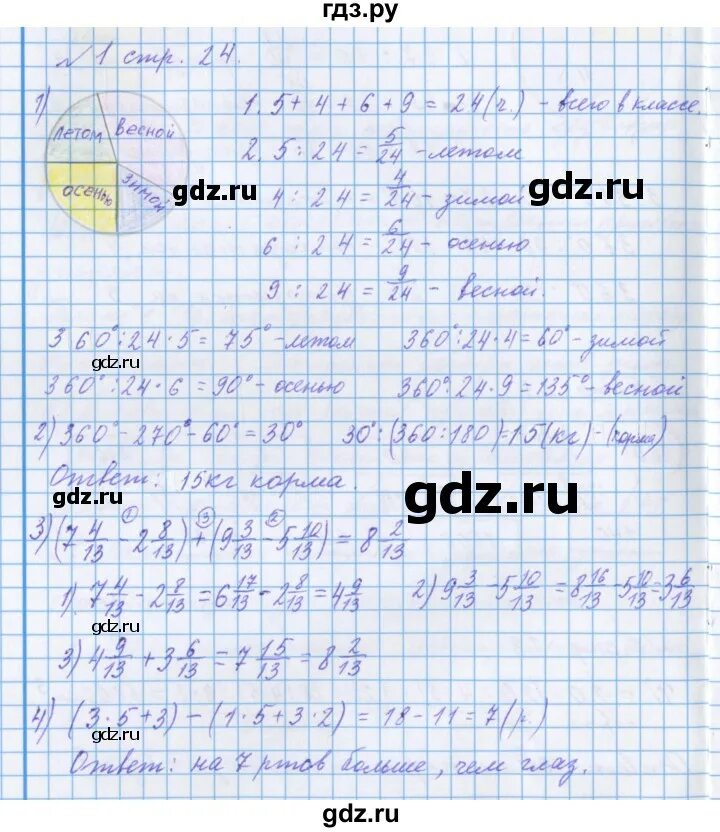 гдз.ру
№ 1 стр. 24.
1) 1. 5 + 4 + 6 + 9 = 24 (ч.) - всего в классе.
летом весной
осенью зимой
2. 5 : 24 = 5/24 - летом
gdz.ru gdz.ru
4 : 24 = 4/24 - зимой
6 : 24 = 6/24 - осенью
9 : 24 = 9/24 - весной.
360° : 24 · 5 = 75° - летом 360° : 24 · 4 = 60° - зимой
gdz.ru
360° : 24 · 6 = 90° - осенью 360° : 24 · 9 = 135° - весной
2) 360° - 270° - 60° = 30° 30° : (360 : 180) = 15 (кг) - (корма)
Ответ: 15 кг корма.
gdz.ru gdz.ru
① ③ ②
3) (7 4/13 - 2 8/13) + (9 3/13 - 5 10/13) = 8 2/13
1) 7 4/13 - 2 8/13 = 6 17/13 - 2 8/13 = 4 9/13 2) 9 3/13 - 5 10/13 = 8 16/13 - 5 10/13 = 3 6/13
gdz.ru
3) 4 9/13 + 3 6/13 = 7 15/13 = 8 2/13
4) (3 · 5 + 3) - (1 · 5 + 3 · 2) = 18 - 11 = 7 (р.)
gdz.ru
Ответ: на 7 ртов больше, чем глаз.
gdz.ru